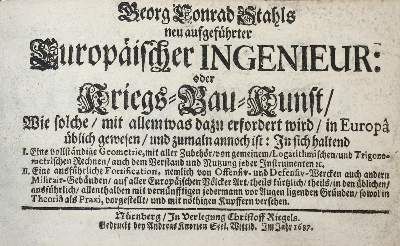 Georg Conrad Stahls
neu aufgeführter
Europäischer INGENIEUR:
oder
Kriegs-Bau-Kunst/
Wie solche / mit allem was dazu erfordert wird / in Europâ
üblich gewesen / und zumaln annoch ist: In sich haltend
I. Eine vollständige Geometrie, mit aller Zubehör / von gemeinen / Logarithmischen / und Trigono-
metrischen Rechnen / auch dem Verstand und Nutzung jeder Instrumenten ꝛc.
II. Eine ausführliche Fortification, nemlich von Offensiv- und Defensiv-Wercken auch andern
Militair-Gebäuden / auf aller Europäischen Völcker Art / theils kürtzlich / theils / in den üblichen /
ausführlich / allenthalben mit vernünfftigen jedermann vor Augen ligenden Gründen / sowol in
Theoriâ als Praxi, vorgestellt / und mit nöthigen Kupffern versehen.
Nürnberg / In Verlegung Christoff Riegels.
Gedruckt bey Andreas Knorzen Seel. Wittib. Im Jahr 1687.